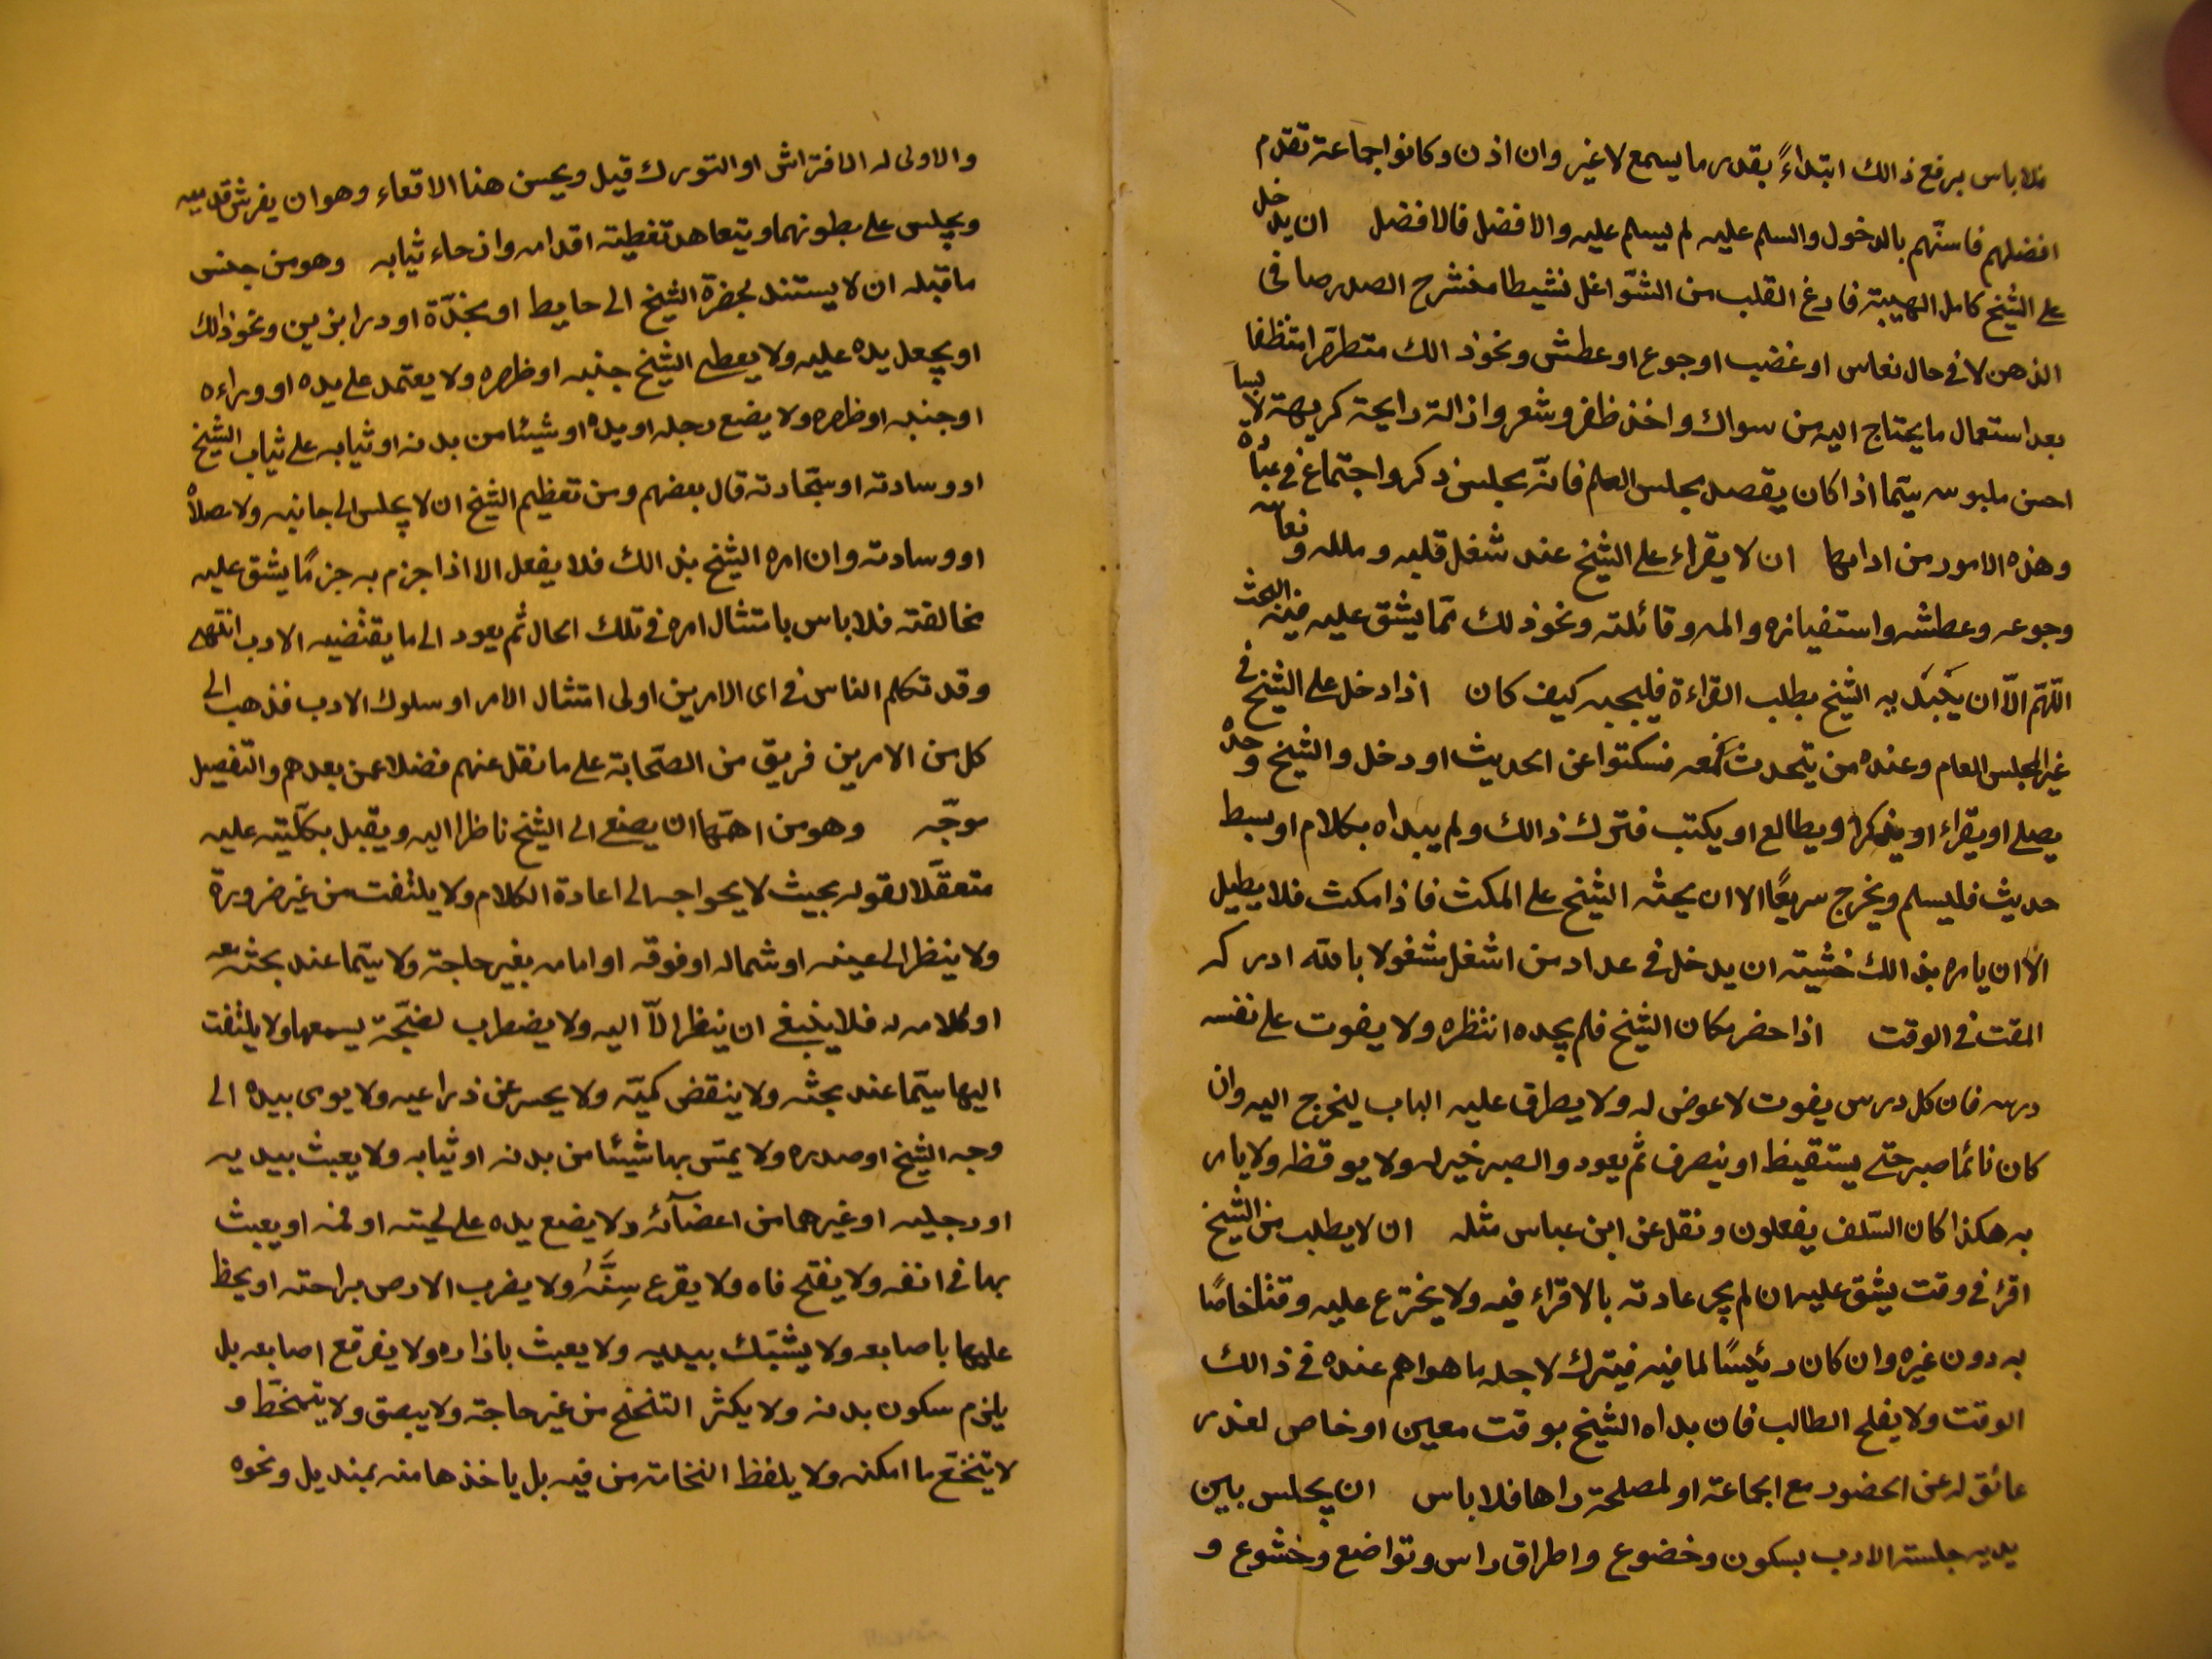 فلا باس برفع ذالك ابتداءً بقدر ما يسمع لا غير وان اذن وكانوا جماعة تقدم
افضلهم فاسنّهم بالدخول والسلم عليه ثم يسلم عليه والافضل فالافضل ان يدخل
على الشيخ كامل الهيبة فارغ القلب من الشّواغل نشيطا منشرح الصدر صافى
الذهن لا فى حال نعاس او غضب او جوع او عطش ونحو ذالك متطهّرا متنظفا
بعد استعمال ما يحتاج اليه من سواك واخذ ظفر وشعر وازالة رايحة كريهة لابسا
احسن ملبوسه سيّما اذا كان يقصد مجلس العلم فانّه مجلس ذكر واجتماع فى عبادة
وهذه الامور من ادابها ان لا يقراء على الشيخ عند شغل قلبه وملله ونعاسه
وجوعه وعطشه واستفيازه والمه وقائلته ونحو ذلك ممّا يشق عليه فيه البحث
اللّهمّ الّا ان يبديه الشيخ بطلب القراءة فليجبه كيف كان اذا دخل على الشيخ فى
غير المجلس العام وعنده من يتحدث معه فسكتوا عن الحديث او دخل والشيخ وحده
يصلى او يقراء او يذكر او يطالع او يكتب فترك ذالك ولم يبداه بكلام او بسط
حديث فليسلم ويخرج سريعًا الا ان يحثه الشيخ على المكث فاذا مكث فلا يطيل
الّا ان يامره بذالك خشية ان يدخل فى عداد من اشغل مشغولا بالله ادركه
المقت فى الوقت اذا حضر مكان الشيخ فلم يجده انتظره ولا يفوت على نفسه
درسه فان كل درس يفوت لا عوض له ولا يطرق عليه الباب ليخرج اليه وان
كان نائما صبر حتى يستقيظ او ينصرف ثم يعود والصبر خير له ولا يوقظه ولا يامر
به هكذا كان السّلف يفعلون ونقل عن ابن عباس مثله ان لا يطلب من الشيخ
اقرا فى وقت يشق عليه ان لم يجر عادته بالاقراء فيه ولا يخترع عليه وقتا خاصًا
به دون غيره وان كان رئيسًا لما فيه فيترك لاجله ما هو اهم عنده فى ذالك
الوقت ولا يفلح الطالب فان بداه الشيخ بوقت معين او خاص لعذر
عائق له عن الحضور مع الجماعة او لمصلحة راها فلا باس ان يجلس بين
يديه جلسة الادب بسكون وخضوع واطراق راس وتواضع وخشوع و
والاولى له الافتراش او التورك قيل ويحسن هنا الاقعاء وهو ان يفرش قدميه
ويجلس على بطونهما ويتعاهد تغطية اقدامه وارخاء ثيابه وهو من جنس
ما قبله ان لا يستند بحضرة الشيخ الى حايط او مخدّة او درابزين ونحو ذالك
او يجعل يده عليه ولا يعطى الشيخ جنبه او ظهره ولا يعتمد على يده او وراءه
او جنبه او ظهره ولا يضع رجله او يده او شيئا من بدنه او ثيابه على ثياب الشيخ
او وسادته او سجّادته قال بعضهم ومن تعظيم الشيخ ان لا يجلس الى جانبه ولا مصلاه
او وسادته وان امره الشيخ بذالك فلا يفعل الا اذا جزم به جزمًا يشق عليه
مخالفته فلا باس بامتثال امره فى تلك الحال ثم يعود الى ما يقتضيه الادب انتهى
وقد تكلم الناس فى اى الامرين اولى امتثال الامر او سلوك الادب فذهب الى
كل من الامرين فريق من الصّحابة على ما نقل عنهم فضلا عمن بعدهم والتفصيل
موجّه وهو من اهمّها ان يصغى الى الشيخ ناظرا اليه ويقبل بكلّيته عليه
متعقّلا لقوله بحيث لا يحواجه الى اعادة الكلام ولا يلتفت من غير ضرورة
ولا ينظر الى يمينه او شماله او فوقه او امامه بغير حاجة ولا سيّما عند بحثه معه
او كلامه له فلا ينبغى ان ينظر الّا اليه ولا يضطرب لضجّة يسمعها ولا يلتفت
اليها سيّما عند بحثه ولا ينفض كميّه ولا يحسر عن ذراعيه ولا يومى بيده الى
وجه الشيخ او صدره ولا يمس بها شيئا من بدنه او ثيابه ولا يعبث بيديه
او رجليه او غيرهما من اعضائه ولا يضع يده على لحيته او فمه او يعبث
بها فى انفه ولا يفتح فاه ولا يقرع سِنَّهُ ولا يضرب الارض براحته او يخط
عليها باصابعه ولا يشبّك بيديه ولا يعبث بازاره ولا يفرقع اصابعه بل
يلزم سكون بدنه ولا يكثر التنحنح من غير حاجة ولا يبصق ولا يتمخّط و
لا يتنخّع ما امكنه ولا يلفظ النخامة من فيه بل ياخذها منه بمنديل ونحوه